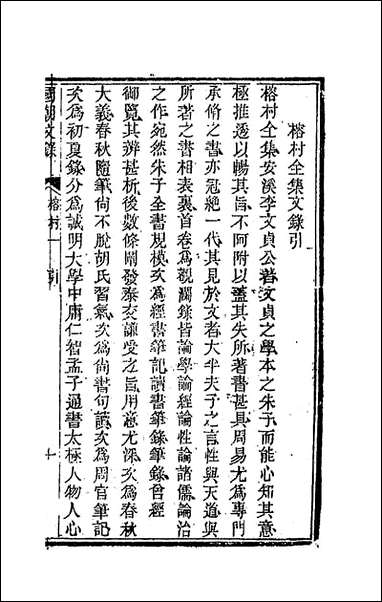 榕村全集文錄引
榕村全集安溪李文貞公著文貞之學本之朱子而能心知其意
極推透以暢其旨不阿附以蓋其失所著書甚具周易尤爲專門
承脩之書亦冠絕一代其見於文者大半夫子之言性與天道與
所著之書相表裏首卷爲觀瀾錄皆論學論經論性論諸儒論治
之作宛然朱子全書規模次爲經書筆記讀書筆錄筆錄曾經
御覽其辨甚析後數條闡發泰交謙受之旨用意尤深次爲春秋
大義春秋隨筆尙不脫胡氏習氣次爲尙書句讀次爲周官筆記
次爲初夏錄分爲誠明大學中庸仁智孟子通書太極人物人心
國朝文錄
榕村
引
一